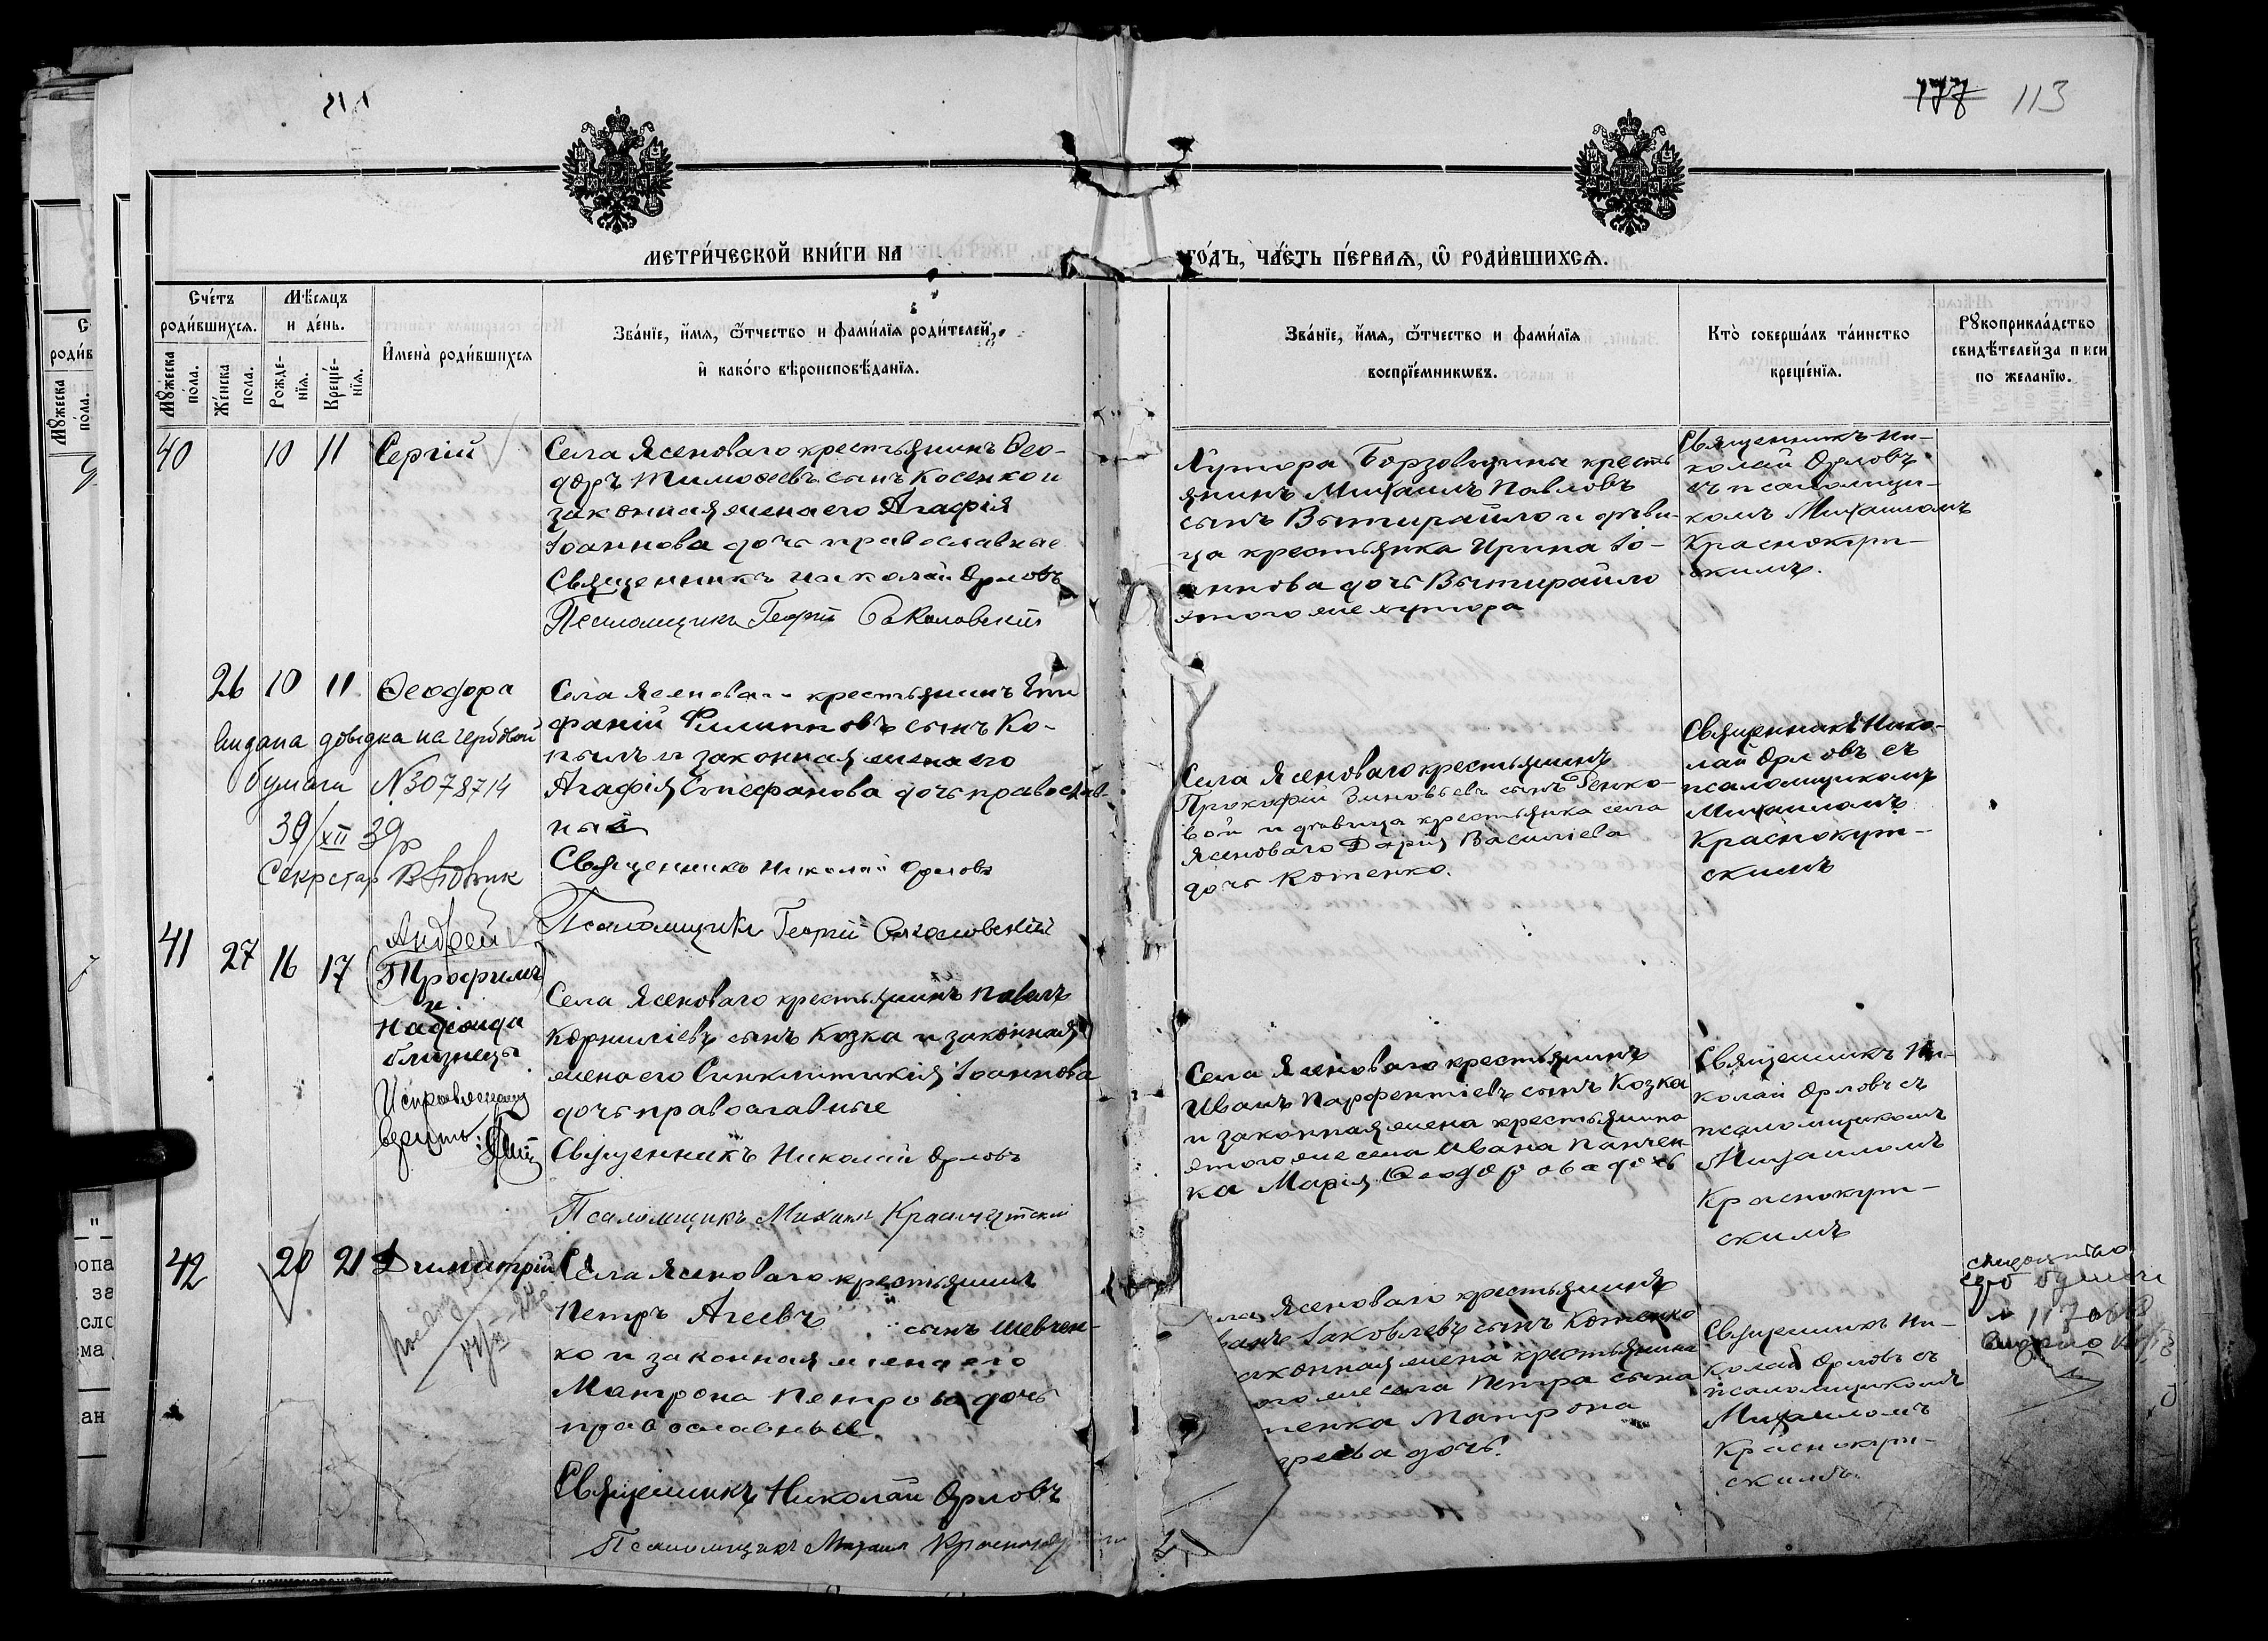 177 113
МЕТРИ́ЧЕСКОЙ КНИ́ГИ НА
ГО́ДЪ, ЧА́СТЬ ПЕ́РВАѦ, Ѡ҃ РОДИ́ВШИХСѦ.
Сче́тъ роди́вшихсѧ.
Мꙋ́жеска по́ла.
Же́нска по́ла.
Мѣ́сѧцъ и де́нь.
Рожде́-нїѧ.
Креще́-нїѧ.
И҆мена̀ роди́вшихсѧ
Зва́нїе, и҆́мѧ, ѻ҆́тчество и фами́лїѧ роди́телей,
и҆ како́гѡ вѣроисповѣ́данїѧ.
Зва́нїе, и҆́мѧ, ѻ҆́тчество и фами́лїѧ
воспрїе́мникѡвъ.
Кто̀ соверша́лъ та́инство
креще́нїѧ.
Рꙋкоприкла́дство
свидѣ́телей за писи
по жела́нїю.
40 10 11 Сергій
Села Ясеноваго крестьянинъ Ѳео-
доръ Тимоѳеевъ сынъ Косенко и
законная жена его Агафія
Іоаннова дочь православные
Священникъ Николай Орловъ
Псаломщикъ Георгій Соколовскій
Хутора Борзовщины кресть
янинъ Михаилъ Павловъ
сынъ Вытирайло и дѣви-
ца крестьянка Ирина Іо-
аннова дочь Вытирайло
этого же хутора
Священникъ Ни-
колай Орловъ
съ псаломщи-
комъ Михаиломъ
Краснокут-
скимъ.
26 10 11 Ѳеодора
видана довідка на гербовой
бумаги №3078714
39/XII 39р
Секретар
Села Ясеноваго крестьянинъ Епи
фаній Филипповъ сынъ Ко-
пылъ и законная жена его
Агафія Стефанова дочь православ-
ные
Священникъ Николай Орловъ
Псаломщикъ Георгій Соколовскій
Села Ясеноваго крестьянинъ
Прокофій Зиновьевъ сынъ Генко-
вой и дѣвица крестьянка села
Ясеноваго Дарія Василіева
дочь Котенко.
Священникъ Нико-
лай Орловъ съ
псаломщикомъ
Михаиломъ
Краснокут-
скимъ
41 27 16 17
Андрей
(Трофимъ)
и
Надежда
близнецы
Исправленному
верить:
Села Ясеноваго крестьянинъ Павелъ
Корниліевъ сынъ Козка и законная
жена его Синклитикія Іоаннова
дочь православные
Священникъ Николай Орловъ
Псаломщикъ Михаилъ Краснокутскій
Села Ясеноваго крестьянинъ
Иванъ Парфентіевъ сынъ Козка
и законная жена крестьянина
этого же села Ивана Панчен-
ка Марія Ѳеодорова дочь
Священникъ Ни-
колай Орловъ съ
псаломщикомъ
Михаиломъ
Краснокут-
скимъ
42 20 21 Димитрій
Села Ясеноваго крестьянинъ
Петръ Агеевъ сынъ Шевчен-
ко и законная жена его
Матрона Петрова дочь
православные
Священникъ Николай Орловъ
Псаломщикъ Михаилъ
ла Ясеноваго крестьянинъ
ванъ Іаковлевъ сынъ Котенко
аконная жена крестьянина
ого же села Петра сына
ненка Матрона
дреева дочь.
Священникъ Ни-
колай Орловъ съ
псаломщикомъ
Михаиломъ
Краснокут-
скимъ.